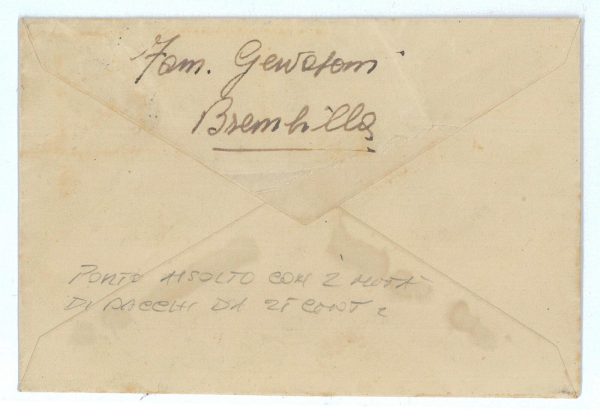 Fam. Gervasoni
Brembilla
PORTO ASSOLTO CON 2 METÀ
DI PACCHI DA 25 CENT.